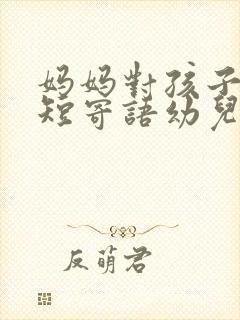 妈妈對孩子
短寄語幼兒
反萌君